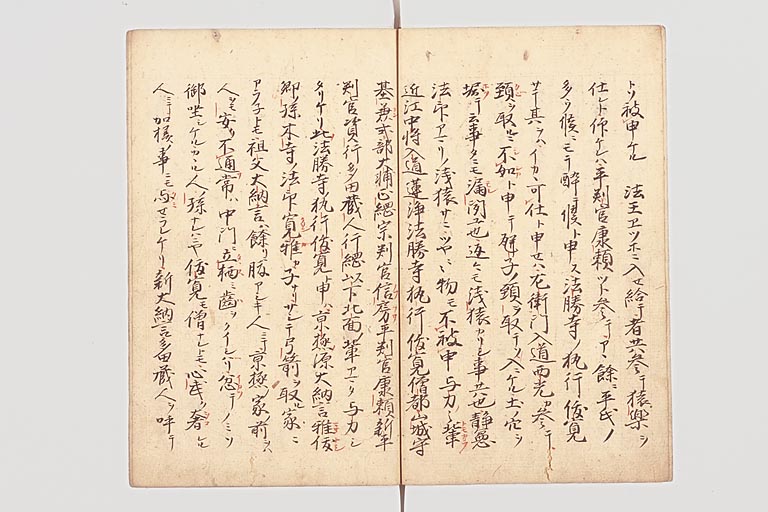 トソ被申ケル 法王ヱツホニ入セ給テ者共参テ猿楽ヲ
仕レト仰ケレハ平判官康頼ツト参テアヽ余ニ平氏ノ
多ク候ニモテ酔テ候ト申ス法勝寺ノ執行俊寛
サテ其ヲハイカヽ可仕ト申セハ左衛門入道西光参テ
頸ヲ取ニハ不如ト申テ瓶子ノ頸ヲ取テ入ニケル
事クモ漏聞 返モ浅猿カリシ事共也静憲
法印アマリノ浅猿サニツヤ〱物モ不被申与力ノ輩
近江中将入道蓮浄法勝寺執行俊寛僧都山城守
基兼式部大輔正綱宗判官信房平判官康頼新平
判官資行多田蔵人行綱以下北面ノ輩アマタ与力シ
タリケリ此法勝寺執行俊寛申ハ京極源大納言雅俊
卿孫木寺ノ法印寛雅カ子ナリサシテ弓箭ヲ取ル家ニ
アラ子トモ祖父大納言餘リ腹アシキ人ニテ京極ノ家ノ前ヲハ
人ヲモ安ク不通常ハ中門ニ立ヤスラヒ歯ヲクイシハリ忿テノミソ
御坐シケルカヽル人ノ孫ナレハニヤ俊寛モ僧ナレトモ心モ武ク奢レル
人ニテ加様ノ事ニモ与セラレケリ新大納言多田蔵人ヲ呼テ